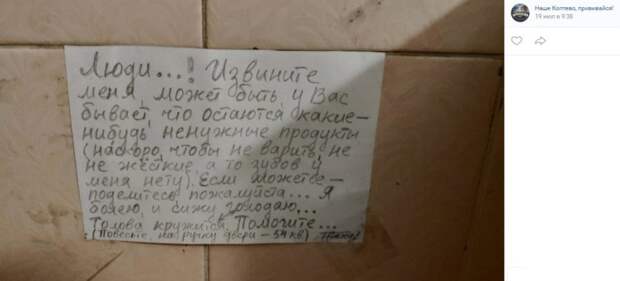 Люди...! Извините
меня, может быть, у Вас
бывает, что остаются какие-
нибудь ненужные продукты
(наскоро, чтобы не варить, не
не жёсткие, а то зубов у
меня нету). Если можете-
поделитесь пожалуйста... Я
болею, и сижу голодаю...
Голова кружится. Помогите...
(Повесьте, на ручку двери - 54 кв)
Наше Коптево, прививайся!
19 июл в 9:38